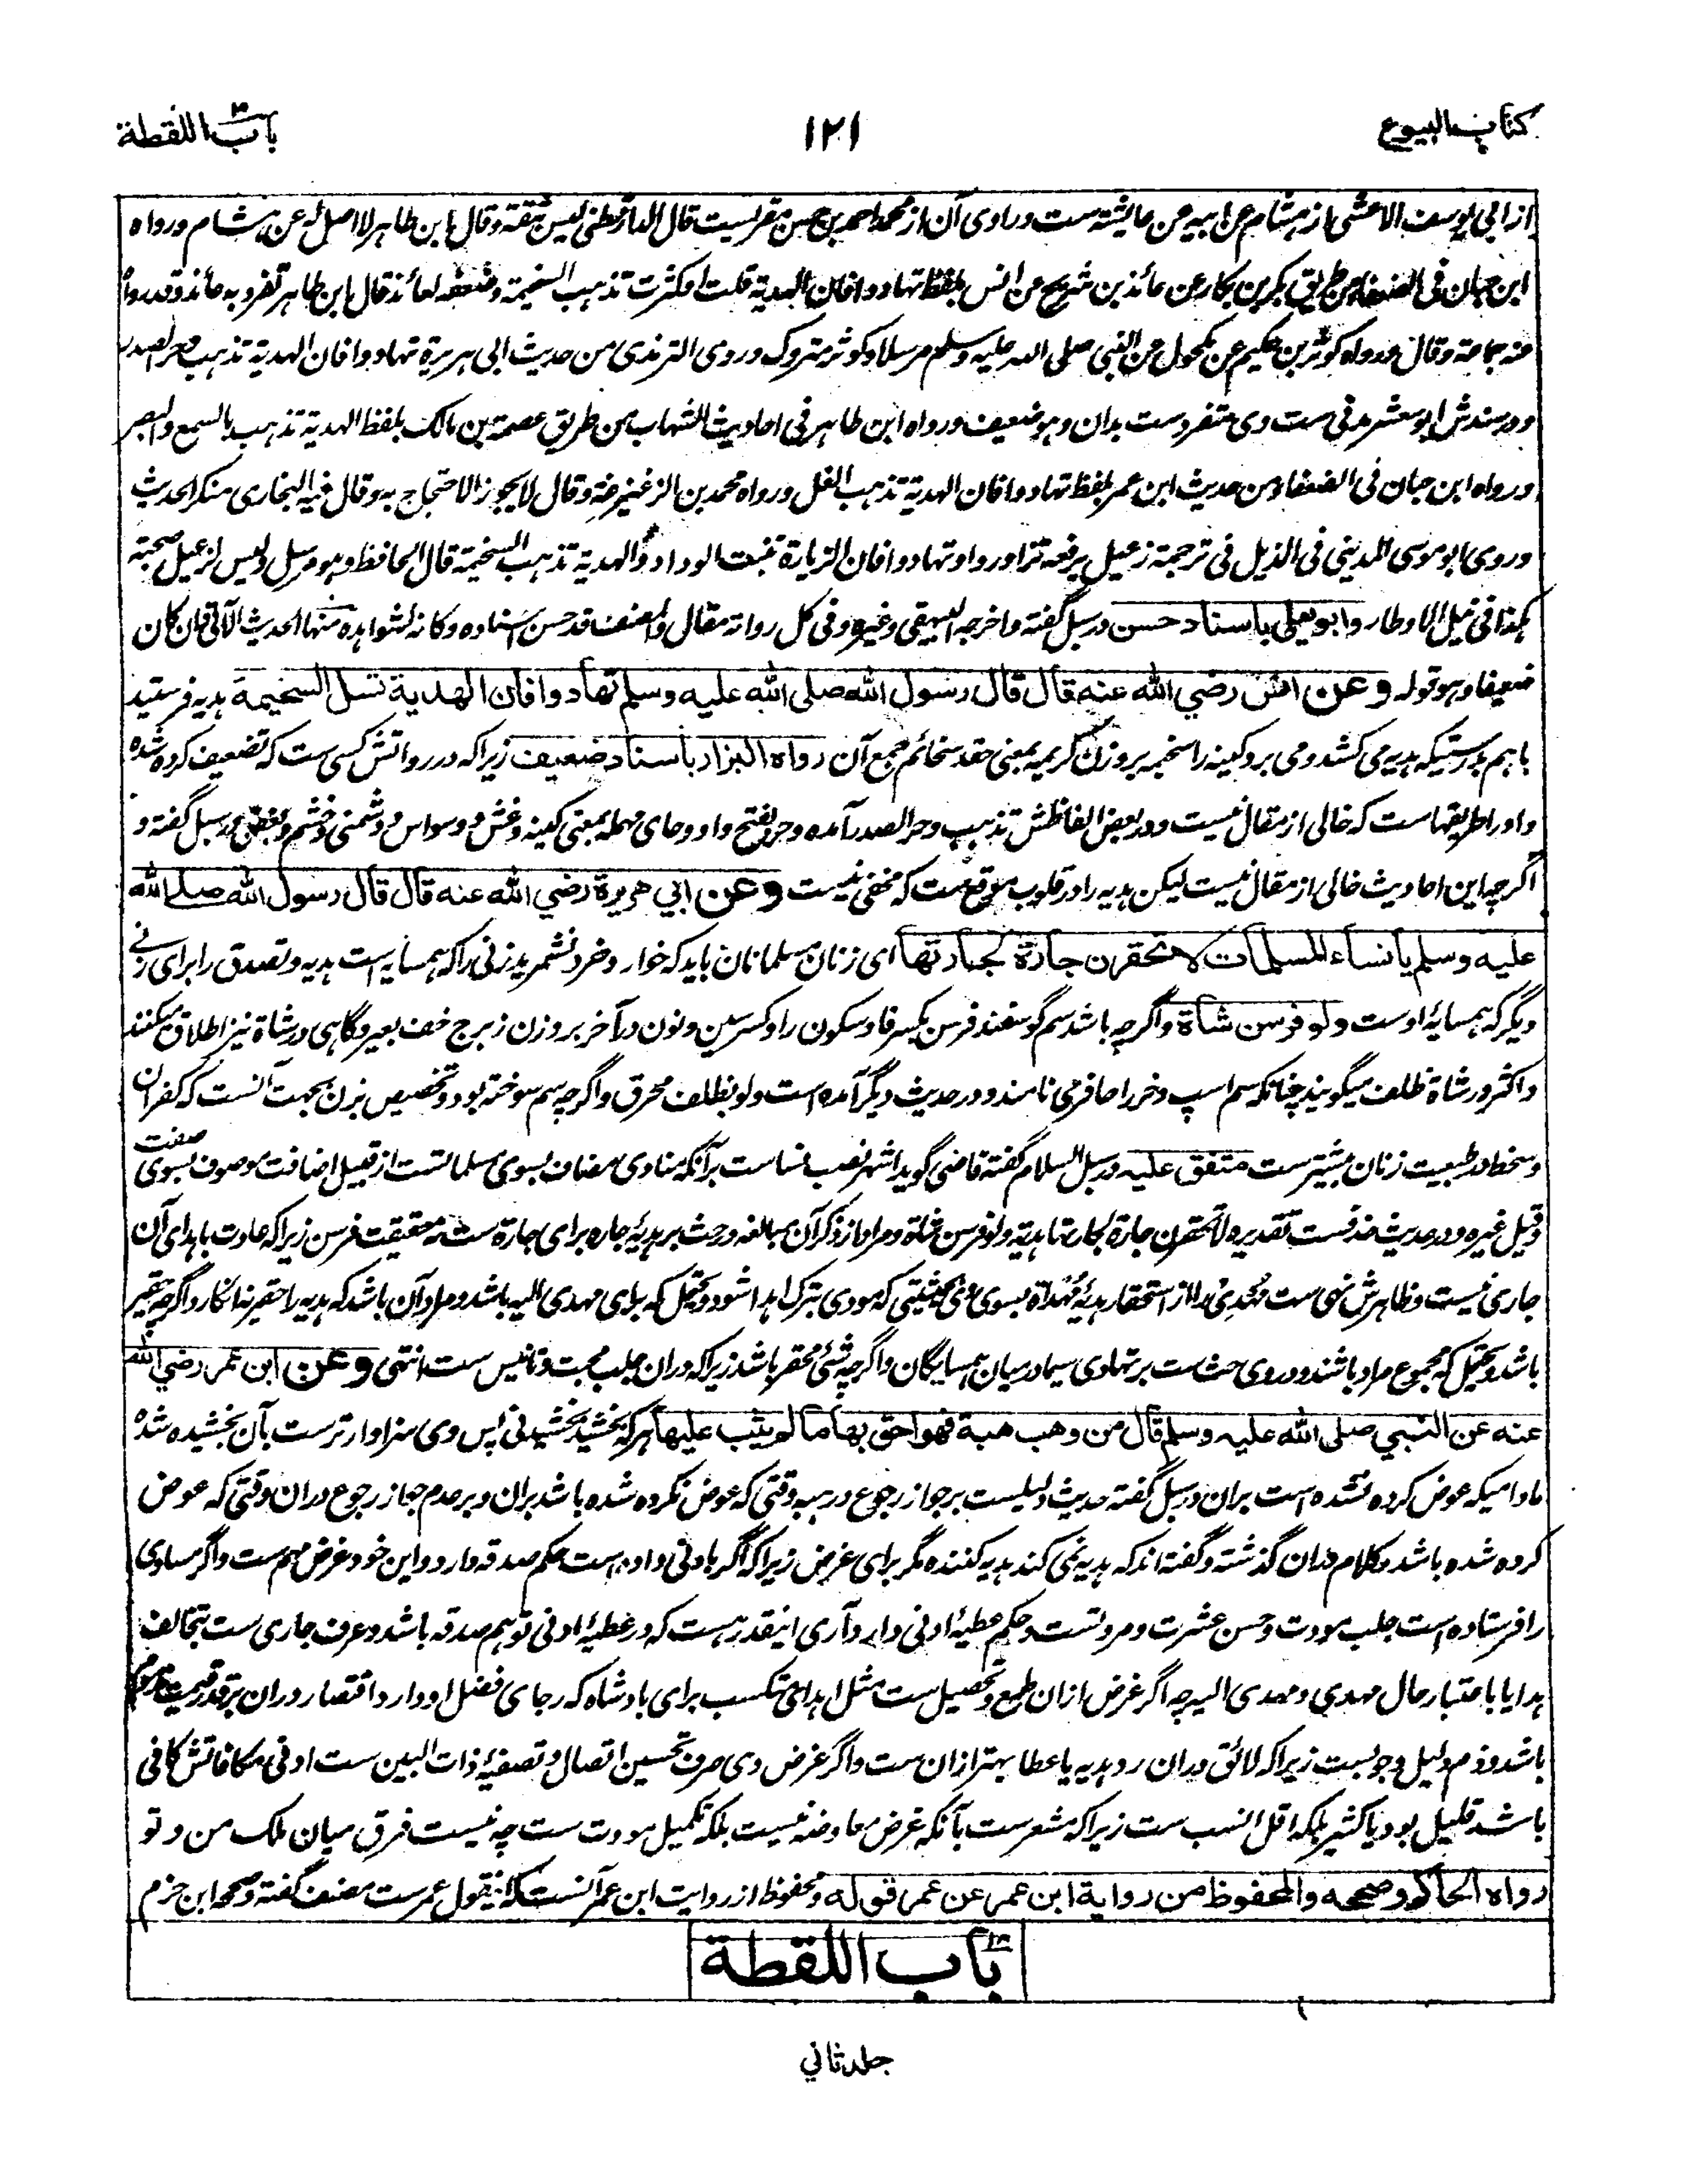 کتاب البیوع
۱۲۱
باب اللقطة
از ابی یوسف الاعشی از هشام عن ابیه عن عایشه ست و راوی آن از محمد احمد بن حسن مقریست قال الدارقطنی لیس بثقة وقال ابن طاهر لا اصل له عن هشام ورواه
ابن حبان فی الضعفاء من طریق بکر بن بکار عن عائذ بن شریح عن انس بلفظ تهادوا فان الهدیة قلت او کثرت تذهب السخیمة وضعفه لعائذ قال ابن طاهر تفرد به عائذ وقد رواه
عنه جماعة وقال ورواه کوثر بن حکیم عن مکحول عن النبی صلی الله علیه وسلم مرسلا وکوثر متروک وروی الترمذی من حدیث ابی هریرة تهادوا فان الهدیة تذهب وحر الصدر
ودر سندش ابو معشر مدنی ست وی متفردست بدان وهو ضعیف ورواه ابن طاهر فی احادیث الشهاب من طریق عصمة بن مالک بلفظ الهدیة تذهب بالسمع والبصر
ورواه ابن حبان فی الضعفاء من حدیث ابن عمر بلفظ تهادوا فان الهدیة تذهب الغل ورواه محمد بن الزعیزعة وقال لا یجوز الاحتجاج به وقال فیه البخاری منکر الحدیث
وروی ابو موسی المدینی فی الذیل فی ترجمة زعبل یرفعه تزاوروا وتهادوا فان الزیارة تنبت الوداد والهدیة تذهب السخیمة قال الحافظ وهو مرسل ولیس لزعبل صحبة
هکذا فی نیل الاوطار وابو یعلی باسناد حسن در سبل گفته واخرجه البیهقی وغیره وفی کل رواته مقال والمصنف قد حسن اسناده وکانه لشواهده منها الحدیث الآتی فان کان
ضعیفا وهو قوله وعن انس رضي الله عنه قال قال رسول الله صلى الله عليه وسلم تهادوا فان الهدية تسل السخيمة هدیه فرستید
باهم بدرستیکه هدیه می کشد و می برد کینه را سخیمه بر وزن کریمه بمعنی حقد سخائم جمع آن رواه البزار باسناد ضعيف زیراکه در رواتش کسی ست که تضعیف کرده شده
و او را طریقهاست که خالی از مقال نیست و در بعض الفاظش تذهب وحر الصدر آمده و حر بفتح واو و حای مهمله بمعنی کینه و غش و وسواس و دشمنی و خشم و بغض در سبل گفته و
اگرچه این احادیث خالی از مقال نیست لیکن هدیه را در قلوب موقع ست که مخفی نیست وعن ابي هريرة رضي الله عنه قال قال رسول الله صلى الله
عليه وسلم يا نساء المسلمات لا تحقرن جارة لجارتها ای زنان مسلمانان باید که خوار و خرد نشمرید زنی را که همسایه است هدیه و تصدق را برای زنی
دیگر که همسایهٔ اوست ولو فرسن شاة و اگرچه باشد سم گوسفند فرسن بکسر فا و سکون را و کسر سین و نون در آخر بر وزن زبرج خف بعیر و گاهی در شاة نیز اطلاق میکنند
و اکثر در شاة ظلف میگویند چنانکه سم اسپ و خر را حافر می نامند و در حدیث دیگر آمده است ولو بظلف محرق و اگرچه سم سوخته بود و تخصیص بزن بجهت آنست که کفران
و سخط در طبیعت زنان بیشترست متفق عليه در سبل السلام گفته قاضی گوید اشهر نصب نساست برآنکه منادی مضاف بسوی مسلماتست از قبیل اضافت موصوف بسوی صفت
وقیل غیره و در حدیث حذفست تقدیره لا تحقرن جارة لجارتها هدیة ولو فرسن شاة و مراد از ذکر آن مبالغه در حث بر هدیهٔ جاره برای جارة ست نه حقیقت فرسن زیراکه عادت باهدای آن
جاری نیست و ظاهرش نهی ست مُهدِی را از استحقار هدیهٔ مُهداة بسوی وی بحیثیتی که مودی بترک اهدا شود و محتمل که برای مهدی الیه باشد و مراد آن باشد که هدیه را حقیر نه انگارد اگرچه حقیر
باشد و محتمل که مجموع مراد باشند و در وی حث ست بر تهادی سیما در میان همسایگان و اگرچه شئ محقر باشد زیراکه دران جلب محبت و تانیس ست انتهی وعن ابن عمر رضي الله
عنه عن النبي صلى الله عليه وسلم قال من وهب هبة فهو احق بها ما لم يثب عليها هرکه بخشید بخشیدنی پس وی سزاوارترست بآن بخشیده شده
مادامیکه عوض کرده نشده است بران در سبل گفته حدیث دلیلست بر جواز رجوع در هبه وقتی که عوض نکرده شده باشد بران و بر عدم جواز رجوع دران وقتی که عوض
کرده شده باشد و کلام دران گذشته و گفته اند که هدیه نمی کند هدیه کننده مگر برای غرض زیراکه اگر بادنی داده است حکم صدقه دارد و این خود غرض مهم ست و اگر مساوی
را فرستاده است جلب مودت و حسن عشرت و مروتست و حکم عطیهٔ ادنی دارد و آری اینقدر هست که در عطیهٔ ادنی توهم صدقه باشد و عرف جاری ست بتخالف
هدایا باعتبار حال مهدی و مهدی الیه چه اگر غرض ازان طمع و تحصیل ست مثل اهدای تکسب برای بادشاه که رجای فضل او دارد اقتصار دران بر قدر قیمت
باشد و ذم دلیل وجوبست زیراکه لائق دران رد هدیه یا عطا بهتر ازان ست و اگر غرض وی صرف تحسین اتصال و تصفیهٔ ذات البین ست ادنی مکافاتش کافی
باشد قلیل بود یا کثیر بلکه اقل انسب ست زیراکه مشعرست بآنکه غرض معاوضه نیست بلکه تکمیل مودت ست چه نیست فرق میان ملک من و تو
رواه الحاكم وصححه والمحفوظ من رواية ابن عمر عن عمر قوله و محفوظ از روایت ابن عمر آنست که این قول عمرست مصنف گفته و صححه ابن حزم
باب اللقطة
جلد ثاني